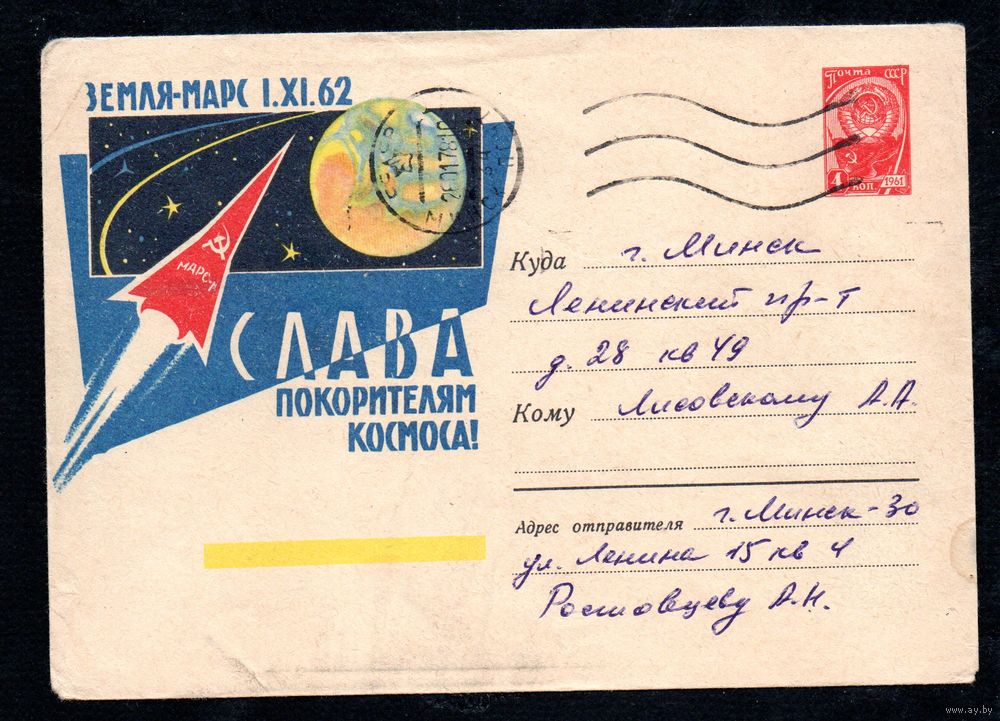 ЗЕМЛЯ-МАРС I.XI.62
МАРС-1
СЛАВА
ПОКОРИТЕЛЯМ
КОСМОСА!
ПОЧТА СССР
4 КОП. 1961
Куда г. Минск
Ленинский пр-т
д. 28 кв 49
Кому Лисовскому А.А.
Адрес отправителя г. Минск-30
ул. Ленина 15 кв 4
Ростовцеву А.Н.
www.ay.by